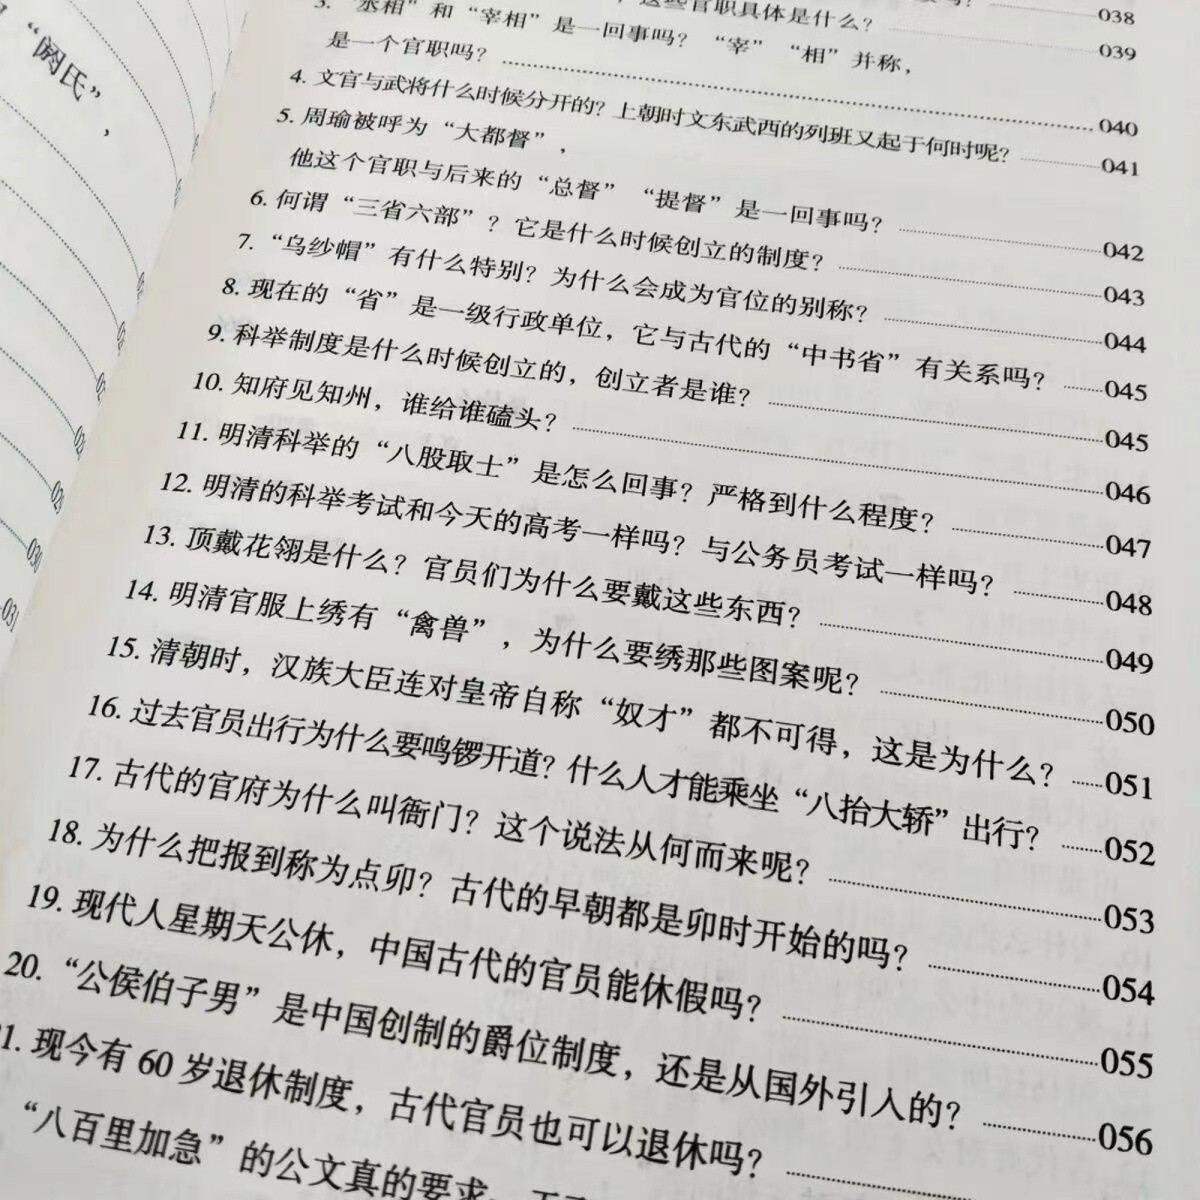 “阏氏”，
030
031
038
这些官职具体是什么？ 039
3. “丞相”和“宰相”是一回事吗？“宰”“相”并称，
是一个官职吗？ 040
4. 文官与武将什么时候分开的？上朝时文东武西的列班又起于何时呢？ 041
5. 周瑜被呼为“大都督”，
他这个官职与后来的“总督”“提督”是一回事吗？ 042
6. 何谓“三省六部”？它是什么时候创立的制度？ 043
7. “乌纱帽”有什么特别？为什么会成为官位的别称？ 044
8. 现在的“省”是一级行政单位，它与古代的“中书省”有关系吗？ 045
9. 科举制度是什么时候创立的，创立者是谁？ 045
10. 知府见知州，谁给谁磕头？ 046
11. 明清科举的“八股取士”是怎么回事？严格到什么程度？ 047
12. 明清的科举考试和今天的高考一样吗？与公务员考试一样吗？ 048
13. 顶戴花翎是什么？官员们为什么要戴这些东西？ 049
14. 明清官服上绣有“禽兽”，为什么要绣那些图案呢？ 050
15. 清朝时，汉族大臣连对皇帝自称“奴才”都不可得，这是为什么？ 051
16. 过去官员出行为什么要鸣锣开道？什么人才能乘坐“八抬大轿”出行？ 052
17. 古代的官府为什么叫衙门？这个说法从何而来呢？ 053
18. 为什么把报到称为点卯？古代的早朝都是卯时开始的吗？ 054
19. 现代人星期天公休，中国古代的官员能休假吗？ 055
20. “公侯伯子男”是中国创制的爵位制度，还是从国外引入的？ 056
1. 现今有60岁退休制度，古代官员也可以退休吗？
“八百里加急”的公文真的要求